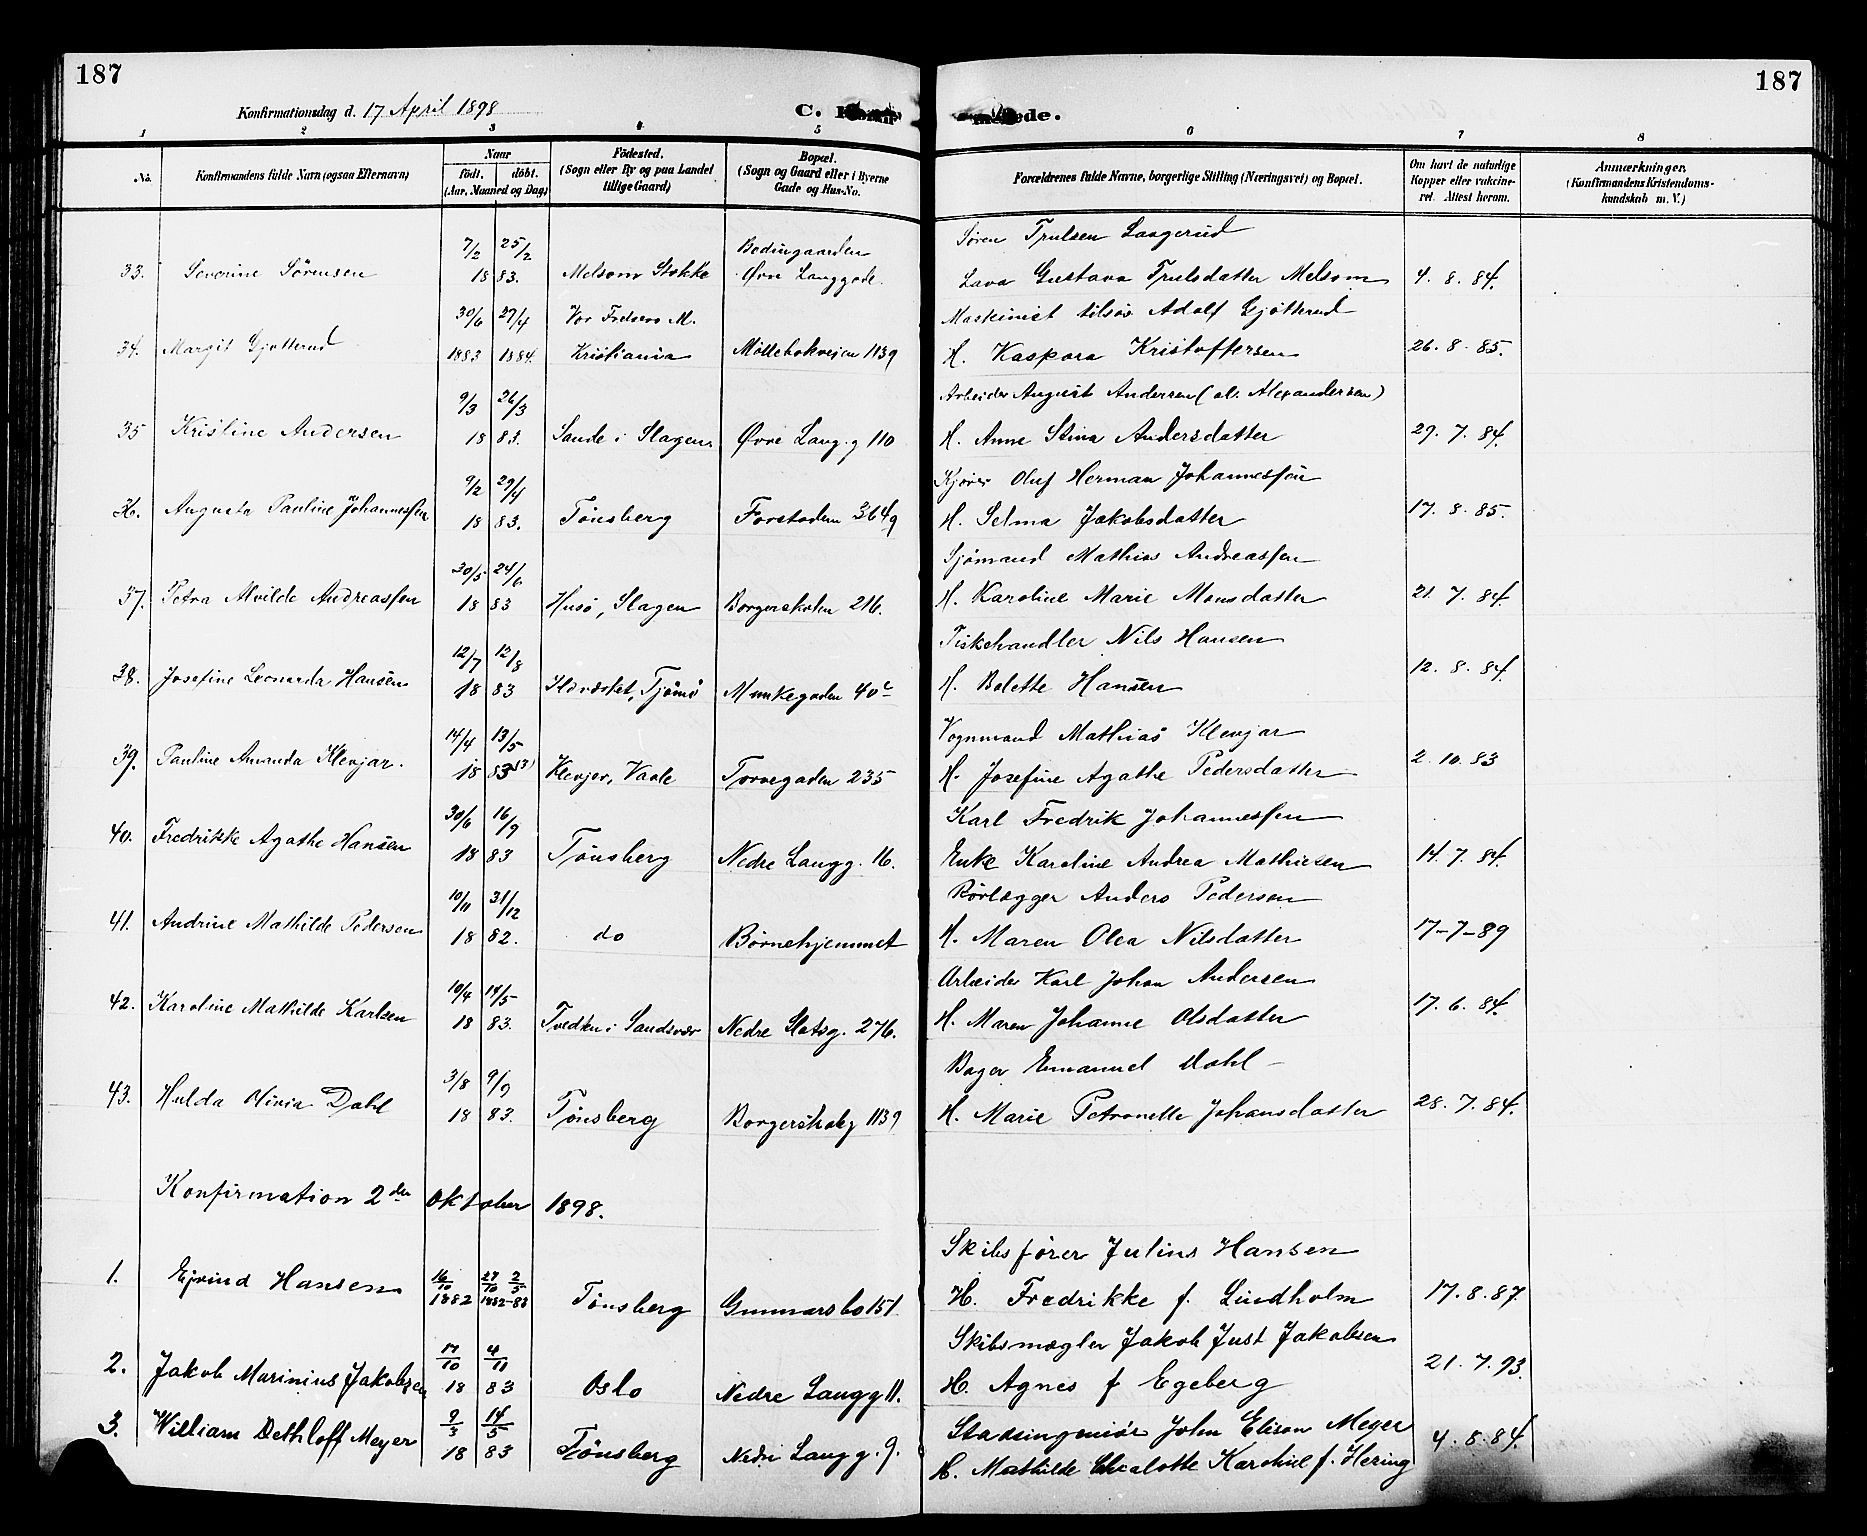 187
187
Konfirmationsdag d. 17 April 1898
C. de.
1 2 3 4 5 6 7 8
No.
Konfirmandens fulde Navn (ogsaa Efternavn)
Naar
födt. döbt.
(Aar, Maaned og Dag)
Födested.
(Sogn eller By og paa Landet
tillige Gaard)
Bopæl.
(Sogn og Gaard eller i Byerne
Gade og Hus-No.
Forældrenes fulde Navne, borgerlige Stilling (Næringsvei) og Bopæl.
Om havt de naturlige
Kopper eller vakcine-
ret. Attest herom.
Anmærkninger.
(Konfirmandens Kristendoms-
kundskab m. V.)
7/2 25/2 Bedingaarden Søren Trulsen Langerud
33. Severine Sørensen 18 83. Melsom Stokke Øvre Langgade. Lava Gustava Trulsdatter Melsom 4. 8. 84.
30/6 27/4 Vor Frelsers M. Maskinist Adolf Gjøtterud
34. Margit Gjøtterud 1883 1884 Kristiania Möllebakveien 113g H. Kaspara Kristoffersen 26. 8. 85.
9/3 26/3 Arbeider August Andersen (al. Alexandersen)
35 Kristine Andersen 18 83. Sande i Slagen Øvre Lang.g 110 H. Anne Stina Andersdatter 29. 7. 84.
9/2 29/4 Kjører Oluf Herman Johannessen
36. Augusta Pauline Johannessen 18 83. Tønsberg Forstaden 364g H. Selma Jakobsdatter 17. 8. 85.
30/5 24/6 Sjömand Mathias Andreassen
37. Petra Alvilde Andreassen 18 83 Husø, Slagen Borgerskolen 216. H. Karoline Marie Monsdatter 21. 7. 84.
12/7 12/8 Fiskehandler Nils Hansen
38. Josefine Leonarda Hansen 18 83 Tjømø Munkegaden 40c H. Bolette Hansen 12. 8. 84.
14/4 13/5 Vognmand Mathias Klevjar
39. Pauline Amanda Klevjar. 18 83 Klevjer, Vaale Torvegaden 235 H. Josefine Agathe Pedersdatter 2. 10. 83
30/6 16/9 Karl Fredrik Johannessen
40. Fredrikke Agathe Hansen 18 83 Tønsberg Nedre Langg. 16. Enke Karoline Andrea Mathiesen 14. 7. 84.
10/11 31/12 Rørlægger Anders Pedersen
41. Andrine Mathilde Pedersen 18 82. do Børnehjemmet H. Maren Olea Nilsdatter 17-7-89
10/4 14/5 Arbeider Karl Johan Andersen
42. Karoline Mathilde Karlsen 18 83. i Sandsvær Nedre Slotsg. 276. H. Maren Johanne Olsdatter 17. 6. 84.
3/8 9/9 Bager Emanuel Dahl
43. Hulda Olivia Dahl 18 83. Tønsberg 113g H. Marie Petronelle Johansdatter 28. 7. 84.
Konfirmation 2den Oktober 1898.
Skibsfører Julius Hansen
1. Ejvind Hansen 16/10 1882 27/10 2/5 1882-83 Tønsberg Gunnarsbo 151. H. Fredrikke f. Lindholm 17. 8. 87.
Skibsmægler Jakob Just Jakobsen
2. Jakob Marinius Jakobsen 17/10 4/11 18 83 Oslo Nedre Langg 11. H. Agnes f Egeberg 21. 7. 93.
Stadsingeniør John Elison Meyer
3. William Dethloff Meyer 9/3 14/5 18 83 Tønsberg Nedre Langg. 9. H. Mathilde Charlotte Karoline f. Hering 4. 8. 84.